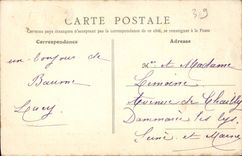 CARTE POSTALE
Certains pays étrangers n'acceptent pas la correspondance de ce côté, se renseigner à la Poste
Correspondance
Adresse
un bonjour de
Baume
Loucy
et Madame
Lemoine
Avenue de Chailly
Dammarie les Lys
Seine et Marne